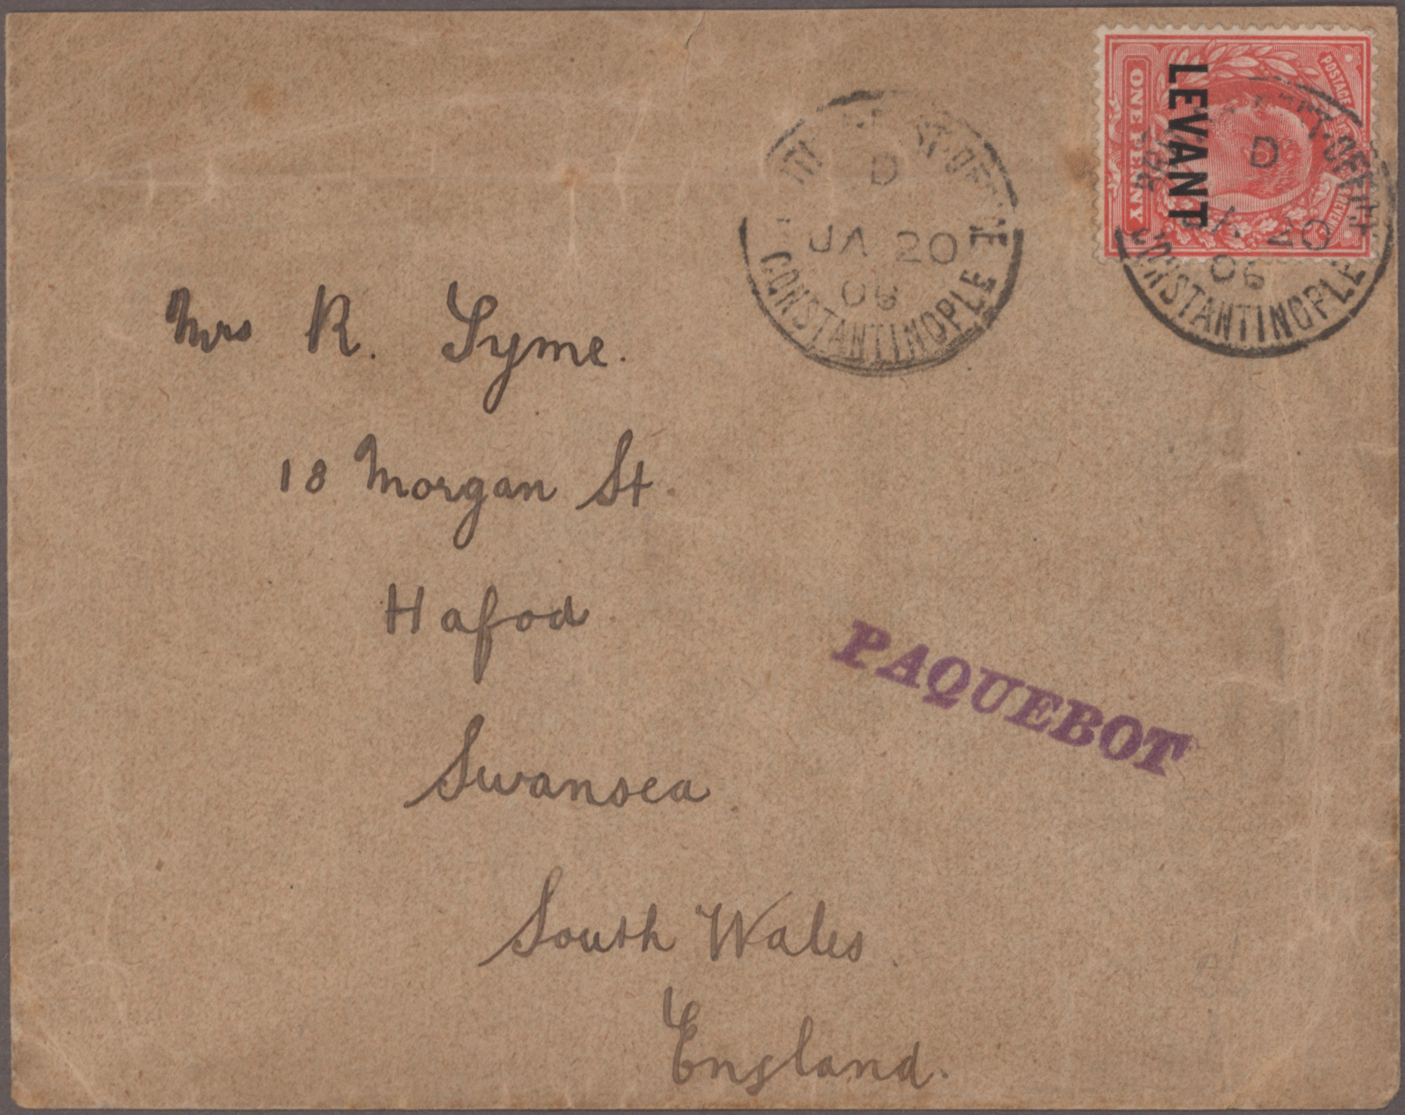 POSTAGE
ONE PENNY
LEVANT
BRITISH POST-OFFICE
D
JA 20
06
CONSTANTINOPLE
D
JA 20
06
CONSTANTINOPLE
Mrs R. Syme.
18 Morgan St.
Hafod
Swansea
South Wales
England.
PAQUEBOT